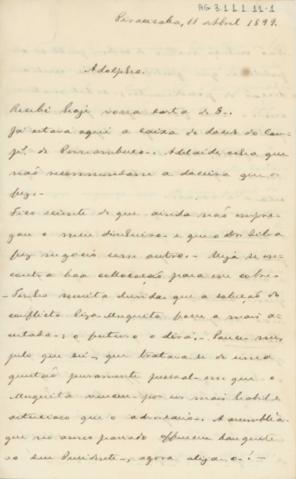 AG 3.1.1.1 11-1
Piracicaba, 11 Abril 1899.
Adolpho.
Recebi hoje vossa carta de 8.
Já estava aqui a caixa de doces do
de Pernambuco. Adelaide acha que
não recommendam a doceira que os
fez.
Fico sciente de que ainda não empre-
gou o meu dinheiro e que o Dr. Silva
fez negocio com outro. Veja se en-
contra boa collocação para os cobres.
Tenho muita duvida que a solução do
conflicto Mesquita fosse a mais
acertada; o futuro o dirá. Parece-me,
pelo que sei, que tratava-se de uma
questão puramente pessoal em que o
Mesquita venceu por ser mais habil e
actucioso que o adversario. A assembléa
que no anno passado offereceu banquete
ao seu Presidente, agora